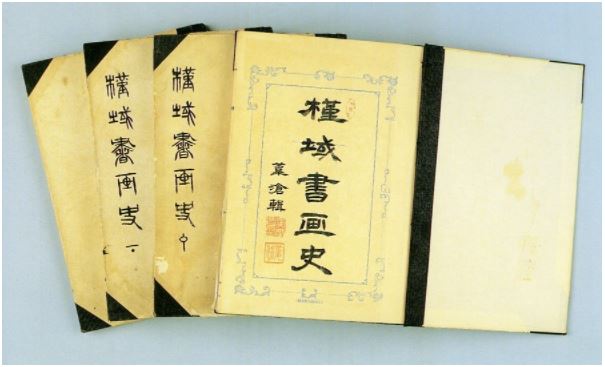 槿域書画史
葦滄輯
槿域書画史
槿域書画史